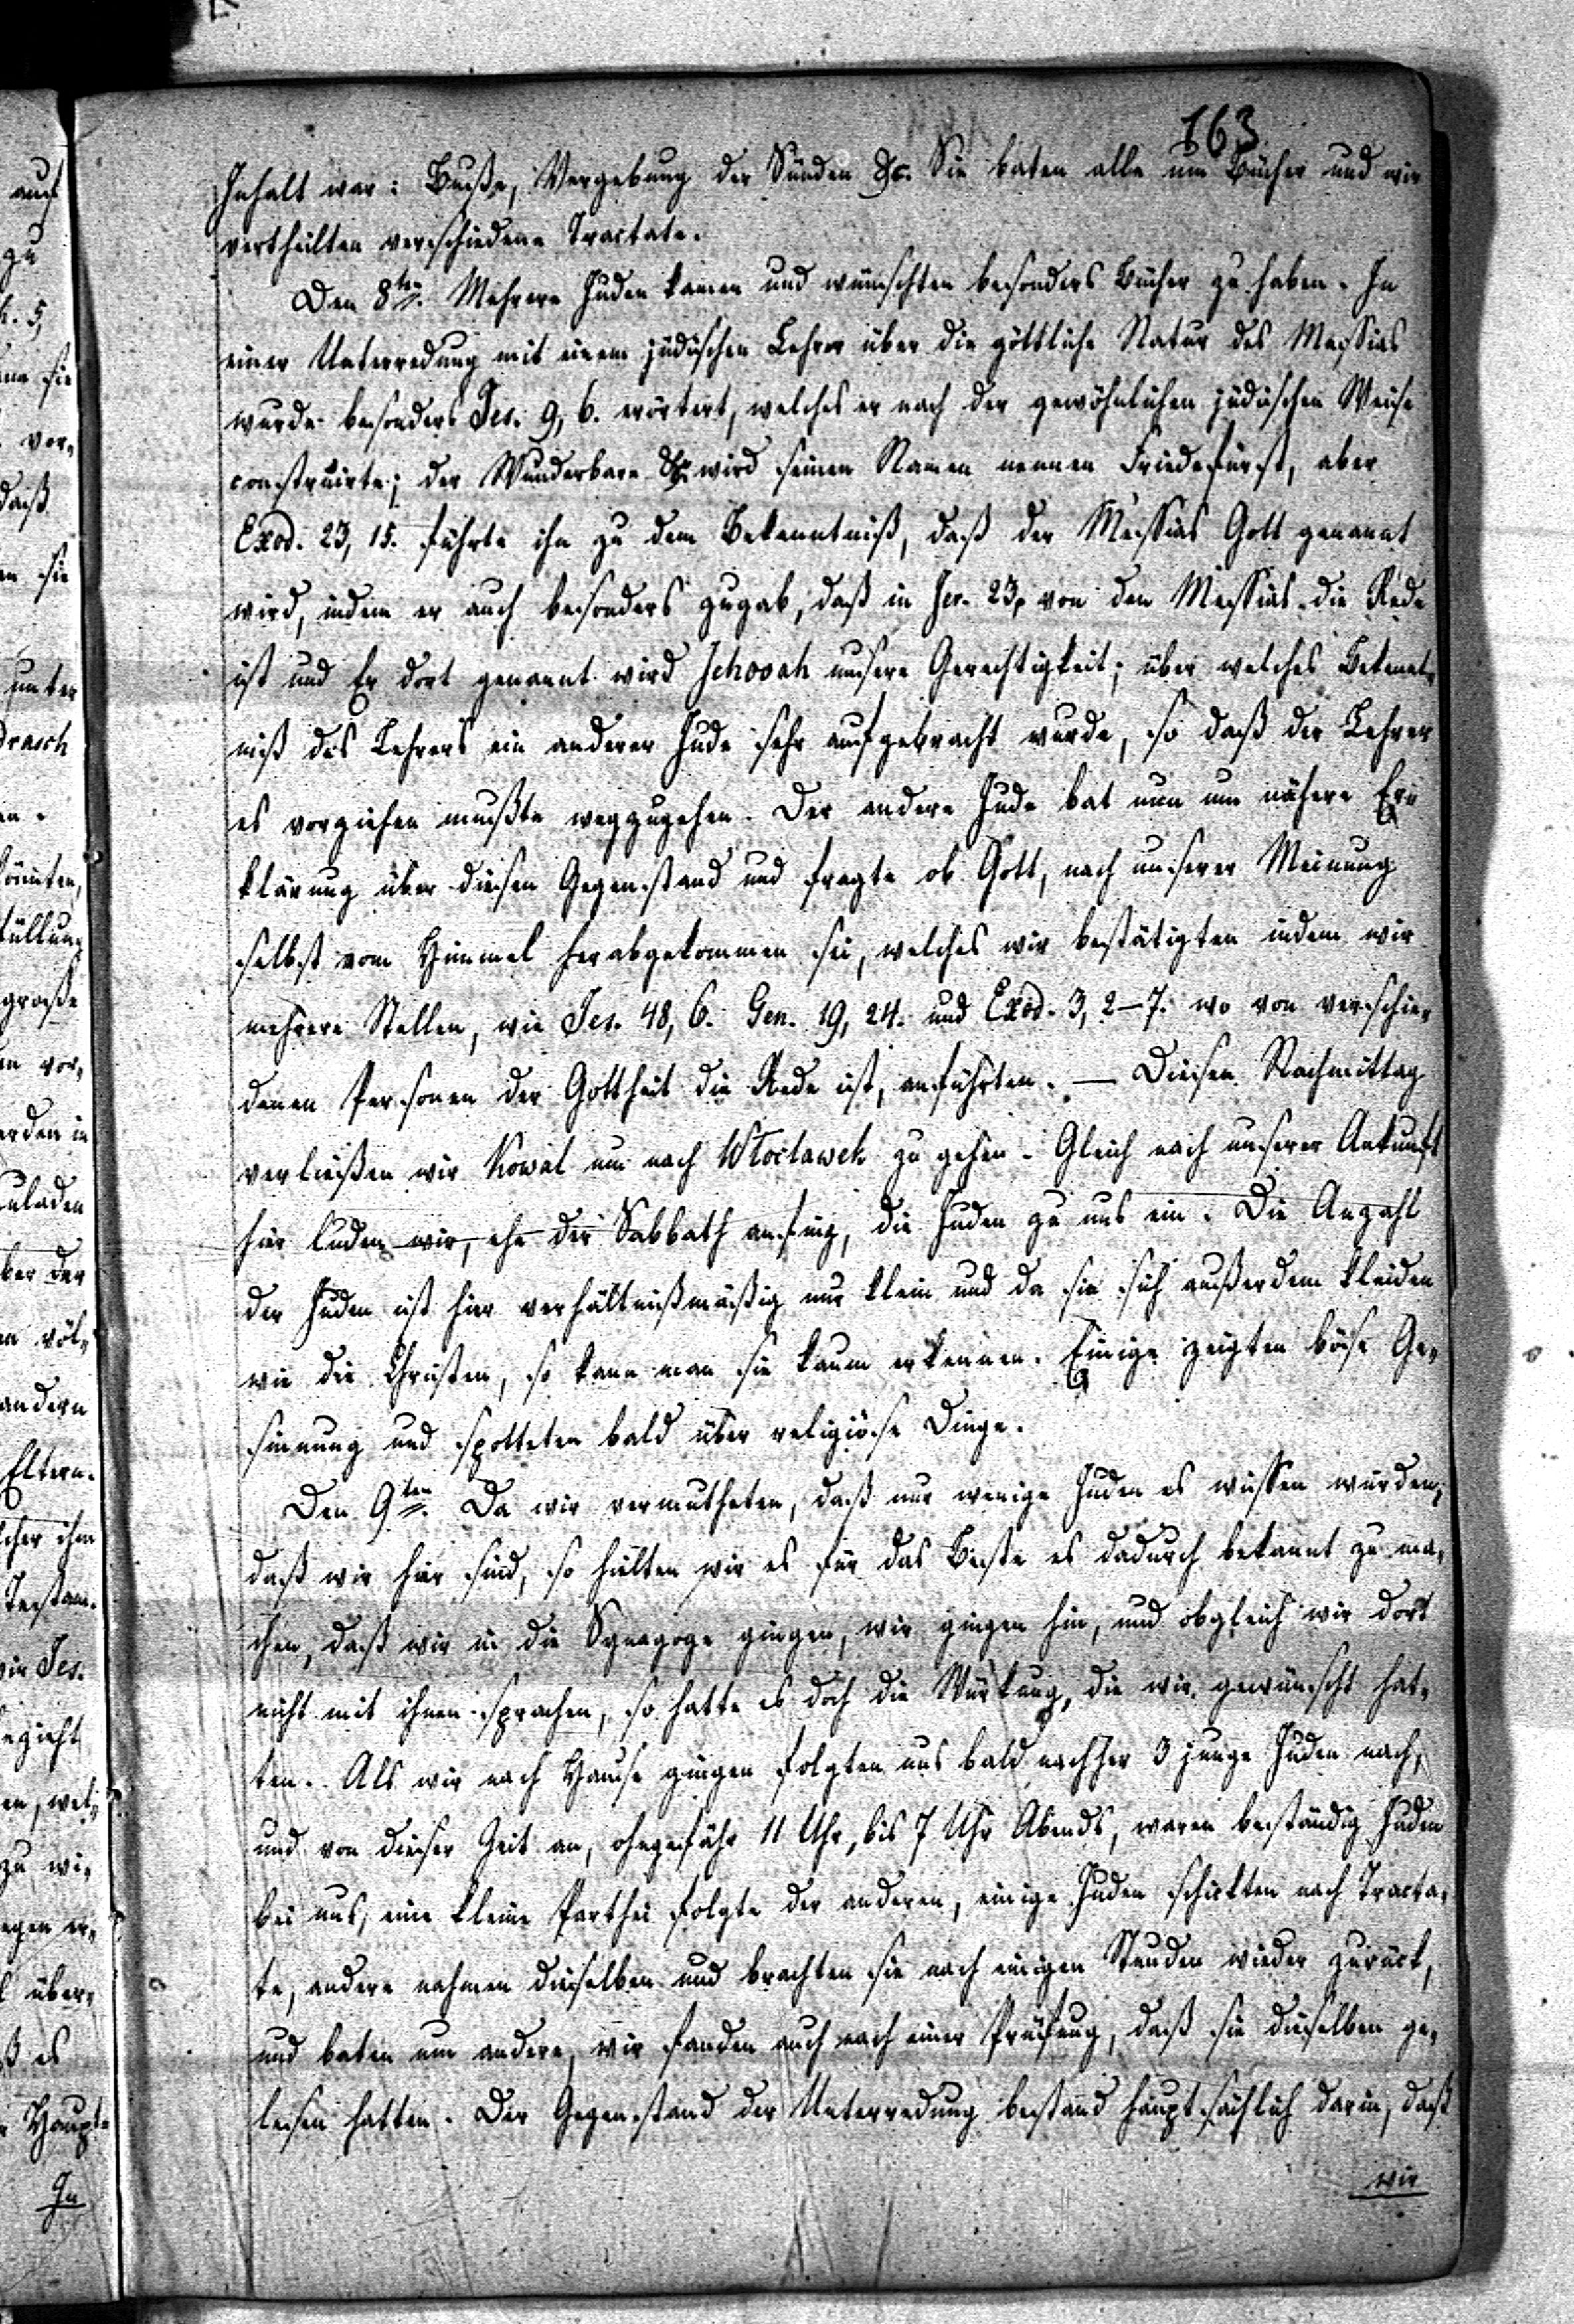 163
Inhalt war: Buße, Vergebung der Sünden &c. Sie baten alle um Bücher und wir
vertheilten verschiedene Tractate.
Den 8ten. Mehrere Juden kamen und wünschten besonders Bücher zu haben. In
einer Unterredung mit einem jüdischen Lehrer über die göttliche Natur des Messias
wurde besonders Jes. 9, 6. erörtert, welches er nach der gewöhnlichen jüdischen Weise
construirte; der Wunderbare &c. wird seinen Namen nennen Friedefürst, aber
Exod. 23, 15. führte ihn zu dem Bekenntniß, daß der Messias Gott genannt
wird, indem er auch besonders zugab, daß in Jer. 23, von den Messias die Rede
ist und Er dort genannt wird Jehovah unsere Gerechtigkeit; über welches Bekennt-
niß des Lehrers ein anderer Jude sehr aufgebracht wurde, so daß der Lehrer
es vorziehen mußte wegzugehen. Der andere Jude bat nun um nähere Er-
klärung über diesen Gegenstand und fragte ob Gott, nach unserer Meinung
selbst vom Himmel herabgekommen sei, welches wir bestätigten indem wir
mehrere Stellen, wie Jes. 48, 6. Gen. 19, 24. und Exod. 3, 2–7. wo von verschie-
denen Personen der Gottheit die Rede ist, anführten. — Diesen Nachmittag
verließen wir Kowal um nach Włocławek zu gehen. Gleich nach unserer Ankunft
hier luden wir, ehe der Sabbath anfing, die Juden zu uns ein. Die Anzahl
der Juden ist hier verhältnißmäßig nur klein und da sie sich außerdem kleiden
wie die Christen, so kann man sie kaum erkennen. Einige zeigten böse Ge-
sinnung und spotteten bald über religiöse Dinge.
Den 9ten. Da wir vermutheten, daß nur wenige Juden es wissen würden,
daß wir hier sind, so hielten wir es für das Beste es dadurch bekannt zu ma-
chen, daß wir in die Synagoge gingen, wir gingen hin, und obgleich wir dort
nicht mit ihnen sprachen, so hatte es doch die Wirkung, die wir gewünscht hat-
ten. Als wir nach Hause gingen folgten uns bald nachher 3 junge Juden nach,
und von dieser Zeit an, ohngefähr 11 Uhr, bis 7 Uhr Abends, waren beständig Juden
bei uns, eine kleine Parthei folgte der anderen, einige Juden schickten nach Tracta-
te, andere nahmen dieselben und brachten sie nach einigen Stunden wieder zurück,
und baten um andere, wir fanden auch nach einer Prüfung, daß sie dieselben ge-
lesen hatten. Der Gegenstand der Unterredung bestand hauptsächlich darin, daß
wir